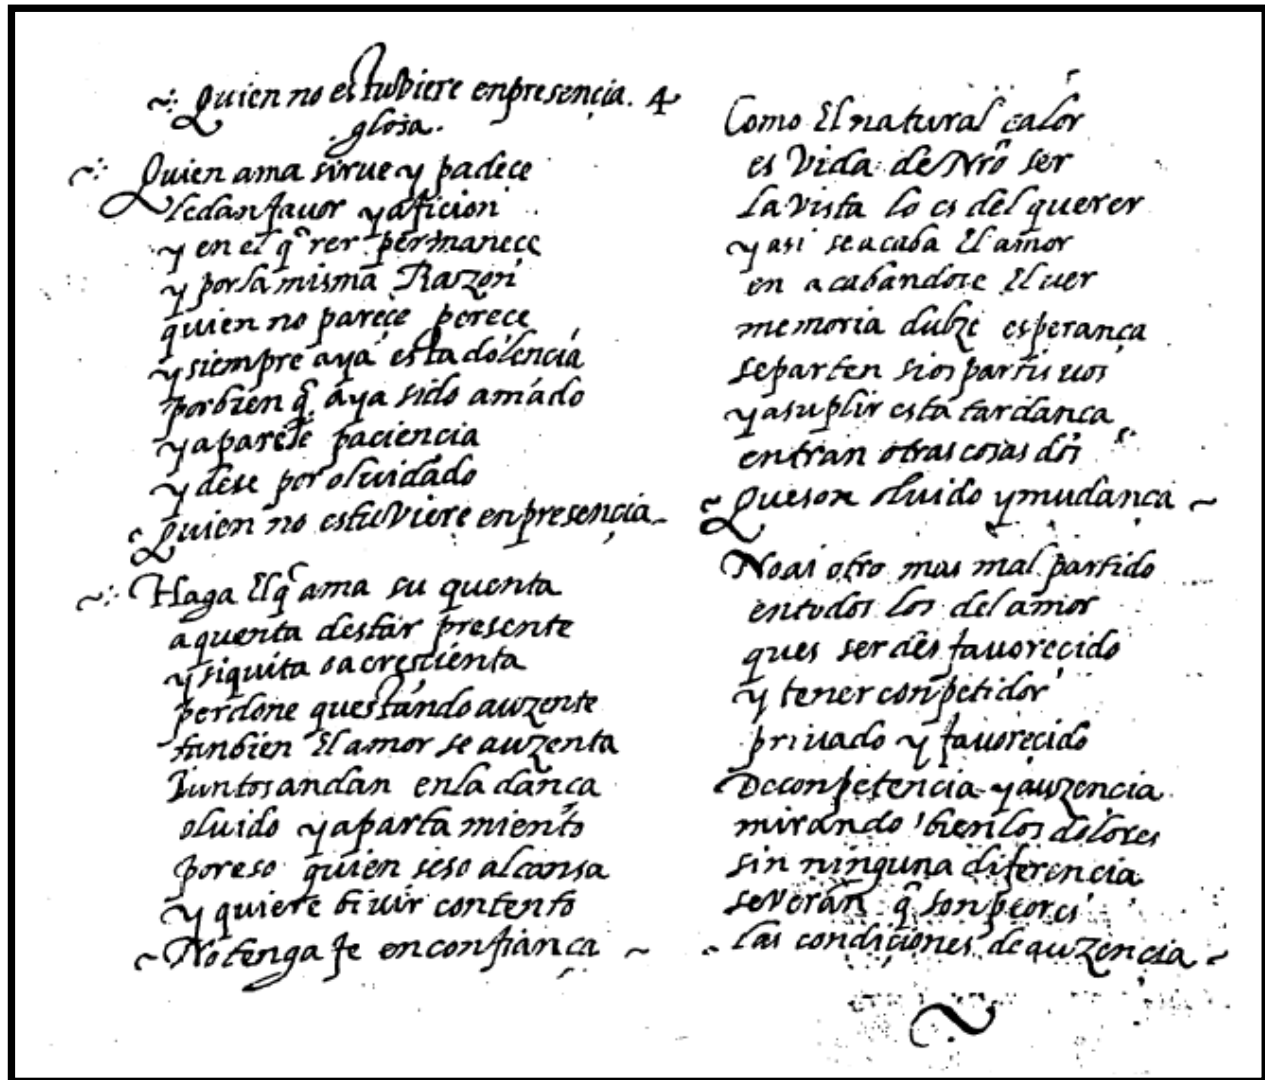 Quien no estubiere enpresençia. 4
glosa.
Quien ama sirue y padece
le dan fauor y aficion
y en el q̃rer permanece
y por la misma Razon
quien no pareçe pereçe
y siempre aya esta dolencia
por bien q̃ aya sido amado
y aparese paciencia
y dese por oluidado
Quien no estuviere enpresençia
Haga El q̃ ama su quenta
a quenta destar presente
y si quita sacrescienta
perdone questando auzente
tanbien El amor se auzenta
Iuntos andan en la dança
oluido y apartamiento
por eso quien seso alcansa
y quiere biuir contento
No tenga fe en confiança
Como El natural calor
es Vida de Nr̃o ser
la Vista lo es del querer
y asi se acaba El amor
en acabandose El uer
memoria dulze esperança
se parten si os partis uos
y a suplir esta tardança
entran otras cosas dos
Que son oluido y mudança
No ai otro mas mal partido
en todos los del amor
ques ser des fauorecido
y tener conpetidor
priuado y fauorecido
De conpetencia y auzencia
mirando bien los dolores
sin ninguna diferencia
se Veran q̃ son peores
las condiçiones de auzencia